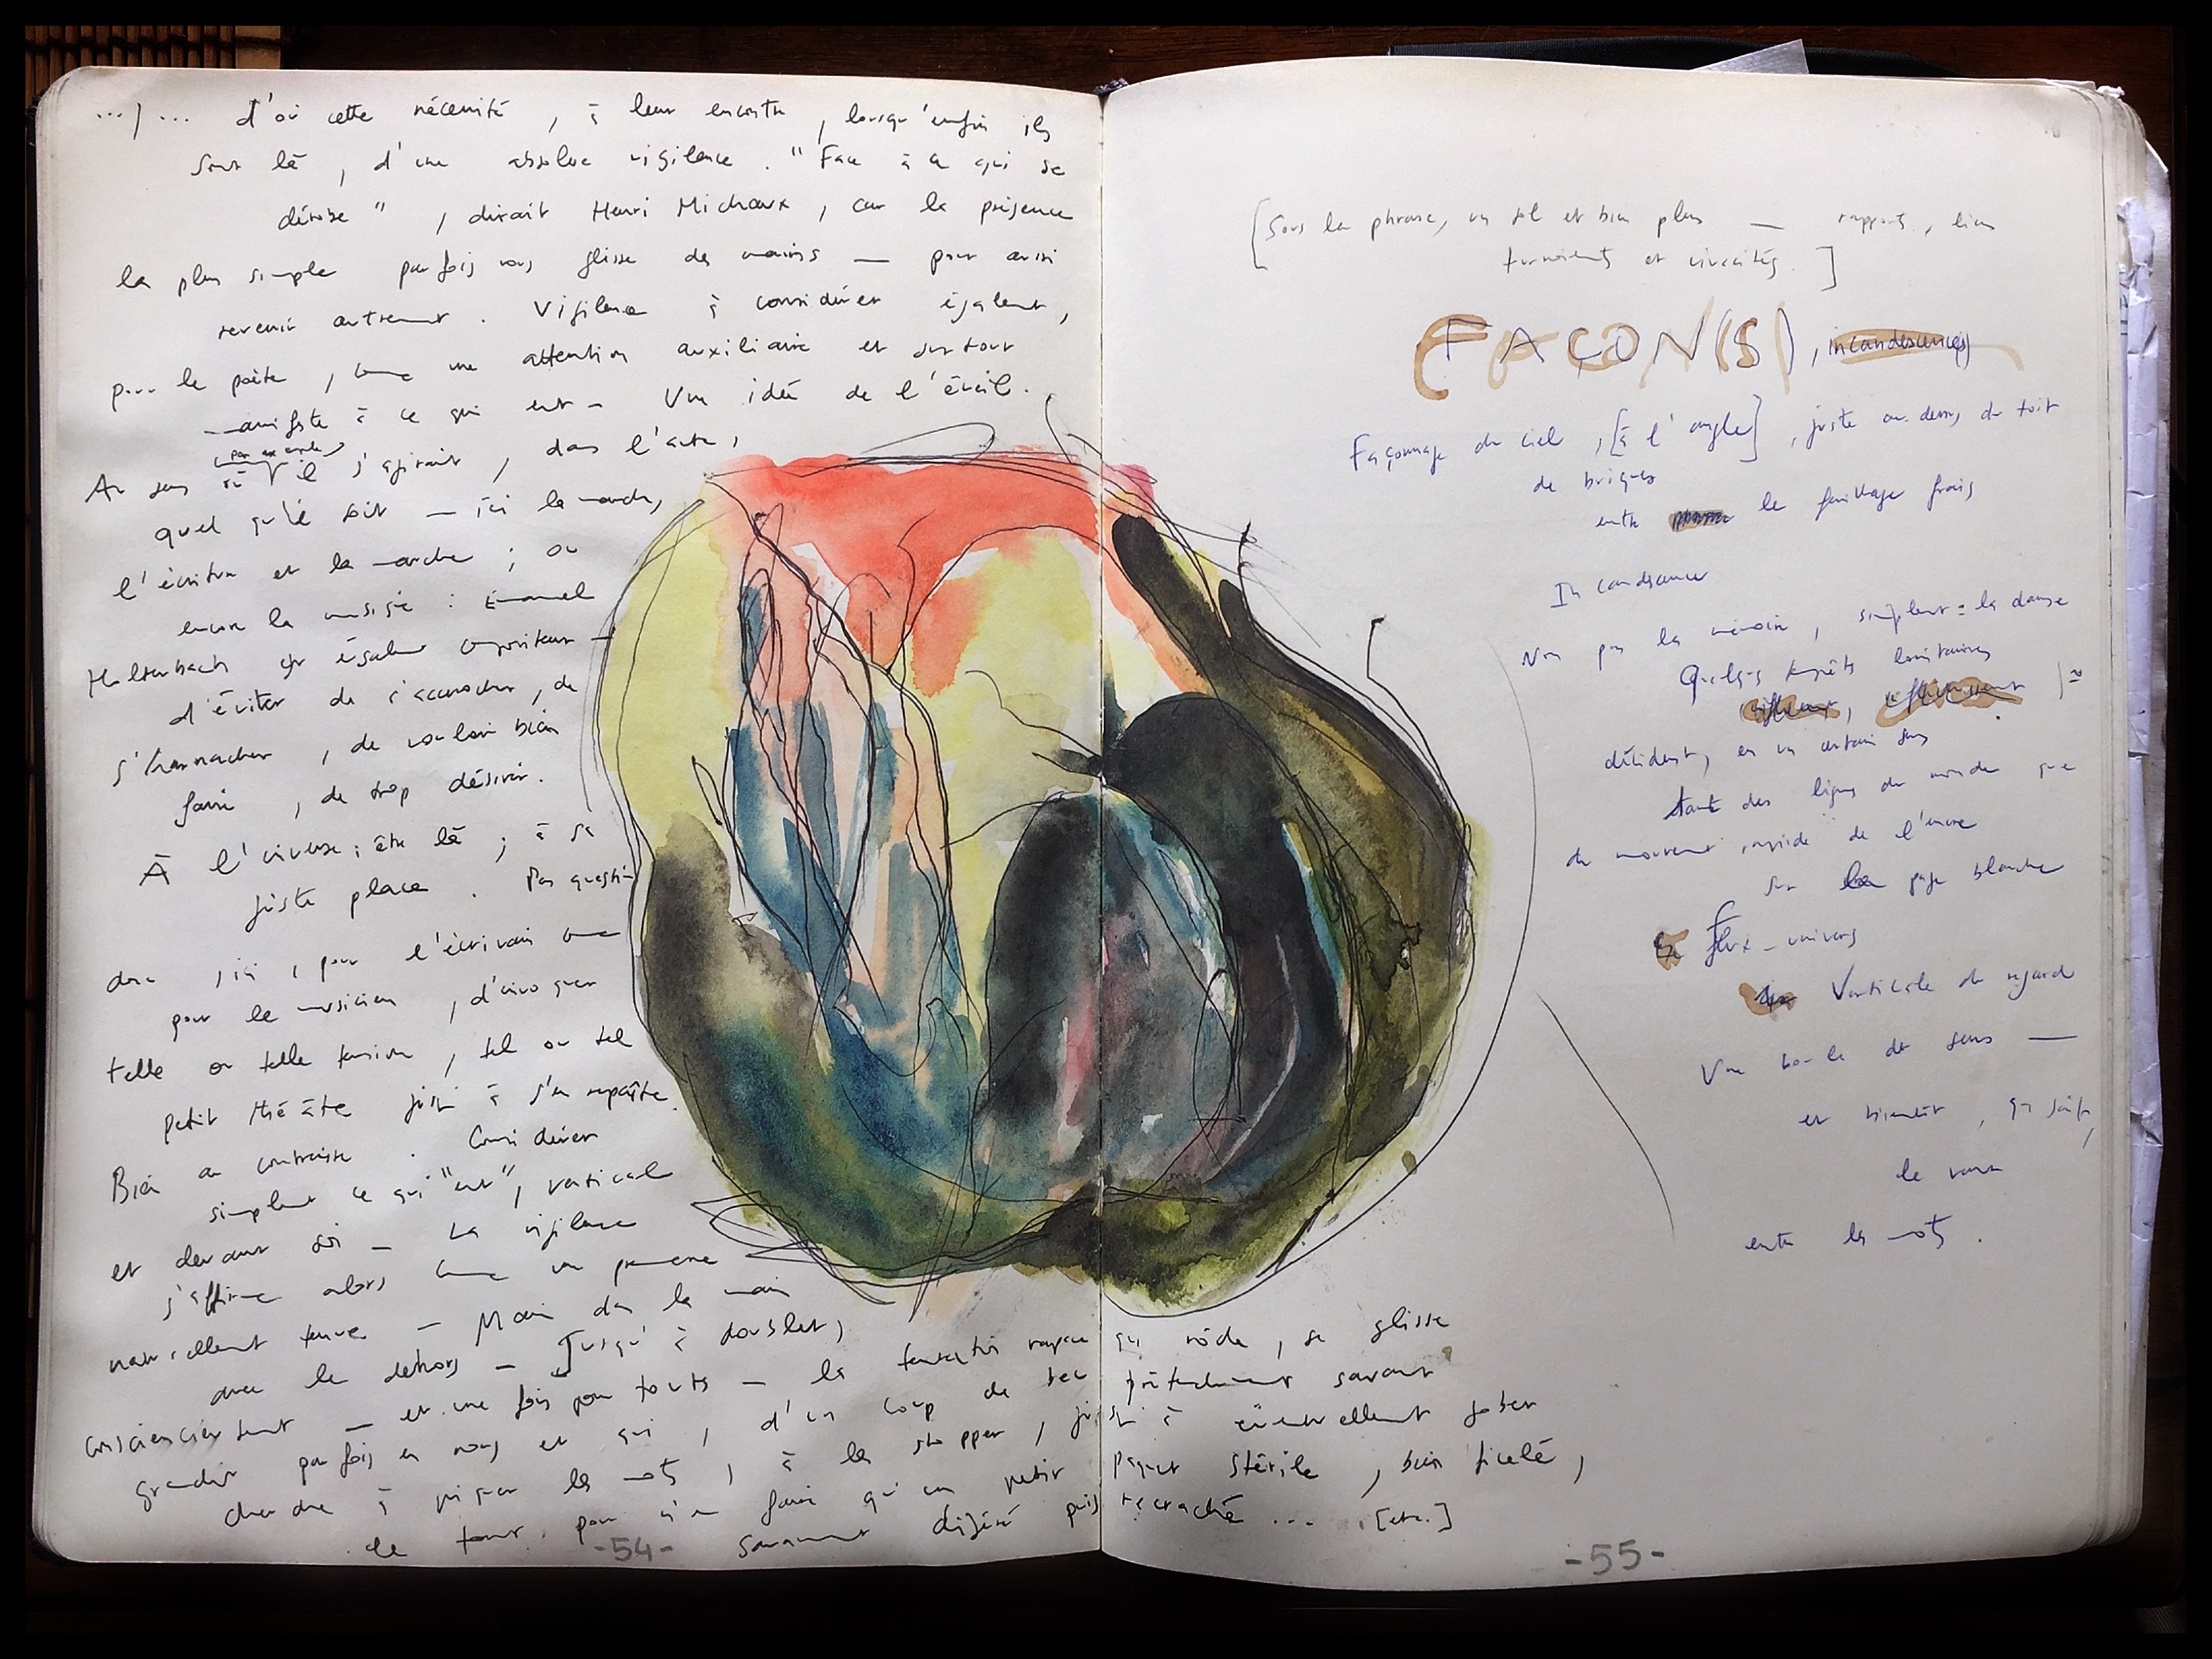 .../... d'où cette nécessité, à leur encontre, lorsqu'enfin ils
sont là, d'une absolue vigilance. "Face à ce qui se
dérobe", dirait Henri Michaux, car la présence
la plus simple parfois vous glisse des mains — pour aussi
revenir autrement. Vigilance à considérer également,
pour le poète, comme une attention auxiliaire et surtout
manifeste à ce qui est – Une idée de l'éveil.
(par exemple)
Au sens où il s'agirait, dans l'acte,
quel qu'il soit – ici la marche,
l'écriture et la marche ; ou
encore la musique : Emanuel
Holterbach est également compositeur –
d'éviter de s'accrocher, de
s'harnacher, de vouloir bien
faire, de trop désirer.
À l'inverse : être là ; à sa
juste place. Pas question
donc, ici, pour l'écrivain comme
pour le musicien, d'invoquer
telle ou telle tension, tel ou tel
petit théâtre jusqu'à s'en repaître.
Bien au contraire. Considérer
simplement ce qui "est", vertical
et devant soi – La vigilance
s'affirme alors comme un
naturellement tenue – Main dans la main
avec le dehors – Jusqu'à doubler,
consciencieusement – et une fois pour toutes – la tentation rapace qui rôde, se glisse
parfois en nous et qui, d'un coup de bec prétendument savant
cherche à piquer les mots, à les stopper, jusqu'à éventuellement gober
le tout pour n'en faire qu'un petit paquet stérile, bien ficelé,
savamment digéré puis recraché ... . [etc.]
-54-
[Sous la phrase, un sol et bien plus — rapports, liens
tournoiements et vivacités.]
FAÇON(S), incandescence(s)
Façonnage du ciel, [à l'angle], juste au-dessus du toit
de briques
entre le feuillage frais
Incandescence
Non pas la mémoire, simplement : la danse
Quelques lointaines
décident, en un certain sens
tant des lignes du monde que
du mouvement rapide de l'encre
sur la page blanche
flux-univers
Verticale du regard
Une boucle de sens —
et bientôt,
le vent
entre les mots.
-55-